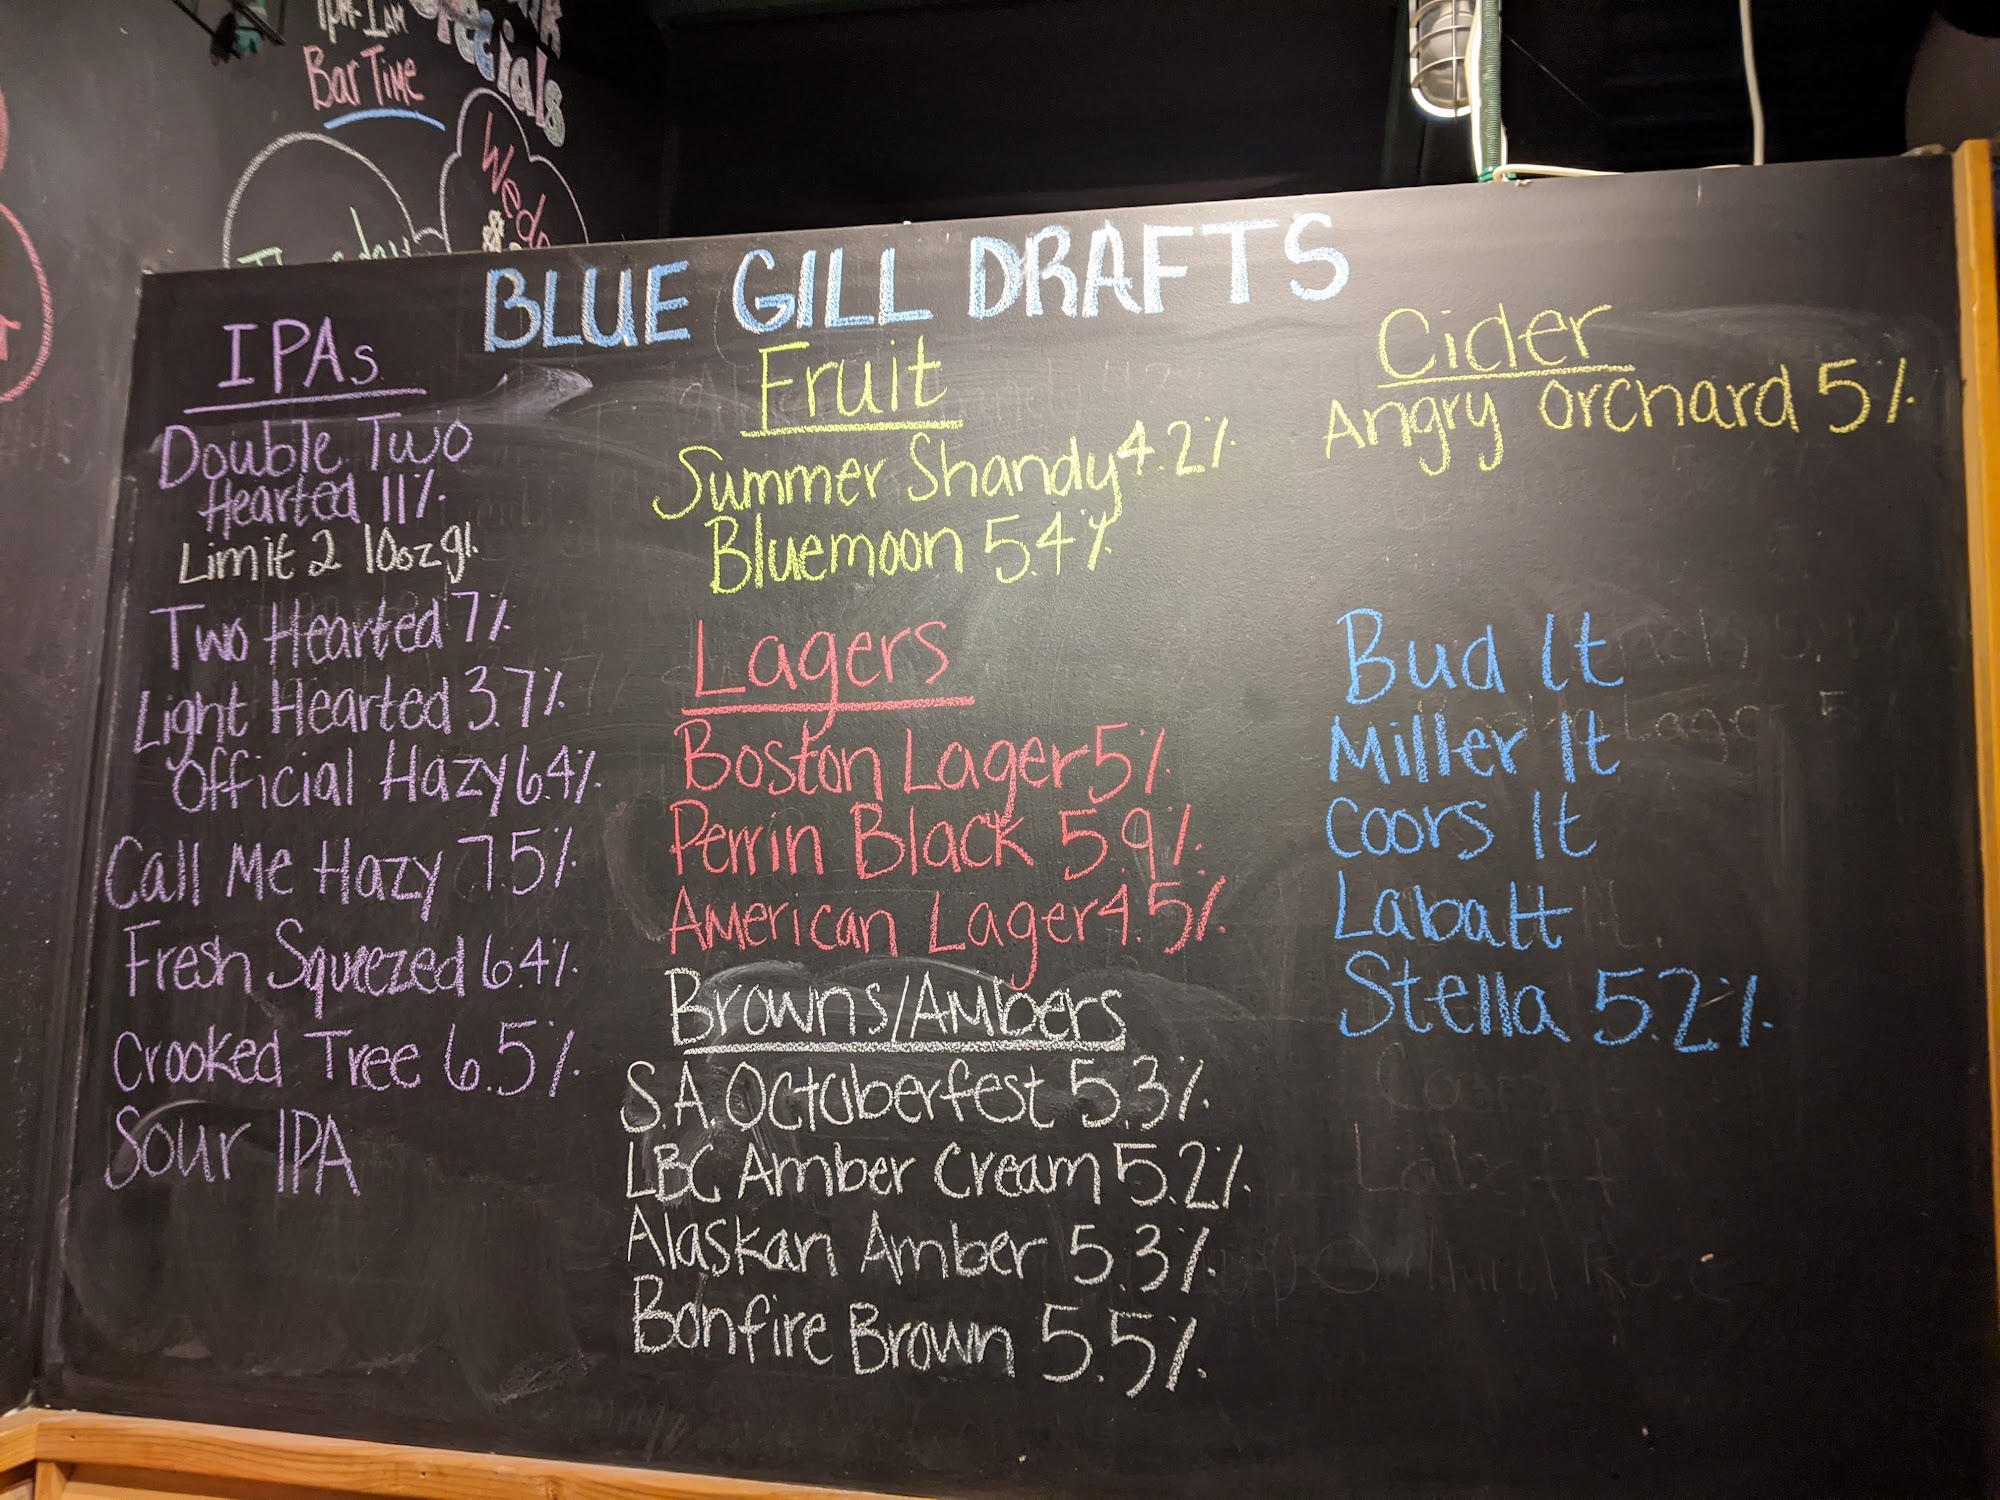 1pm-1am
Bar Time
Specials
Wed
Thursday
BLUE GILL DRAFTS
IPAs
Double Two
Hearted 11%
Limit 2 10oz gl.
Two Hearted 7%
Light Hearted 3.7%
Official Hazy 6.4%
Call Me Hazy 7.5%
Fresh Squeezed 6.4%
Crooked Tree 6.5%
Sour IPA
Fruit
Summer Shandy 4.2%
Bluemoon 5.4%
Lagers
Boston Lager 5%
Perrin Black 5.9%
American Lager 4.5%
Browns/Ambers
S.A. Octoberfest 5.3%
LBC Amber Cream 5.2%
Alaskan Amber 5.3%
Bonfire Brown 5.5%
Cider
Angry Orchard 5%
Bud lt
Miller lt
Coors lt
Labatt
Stella 5.2%